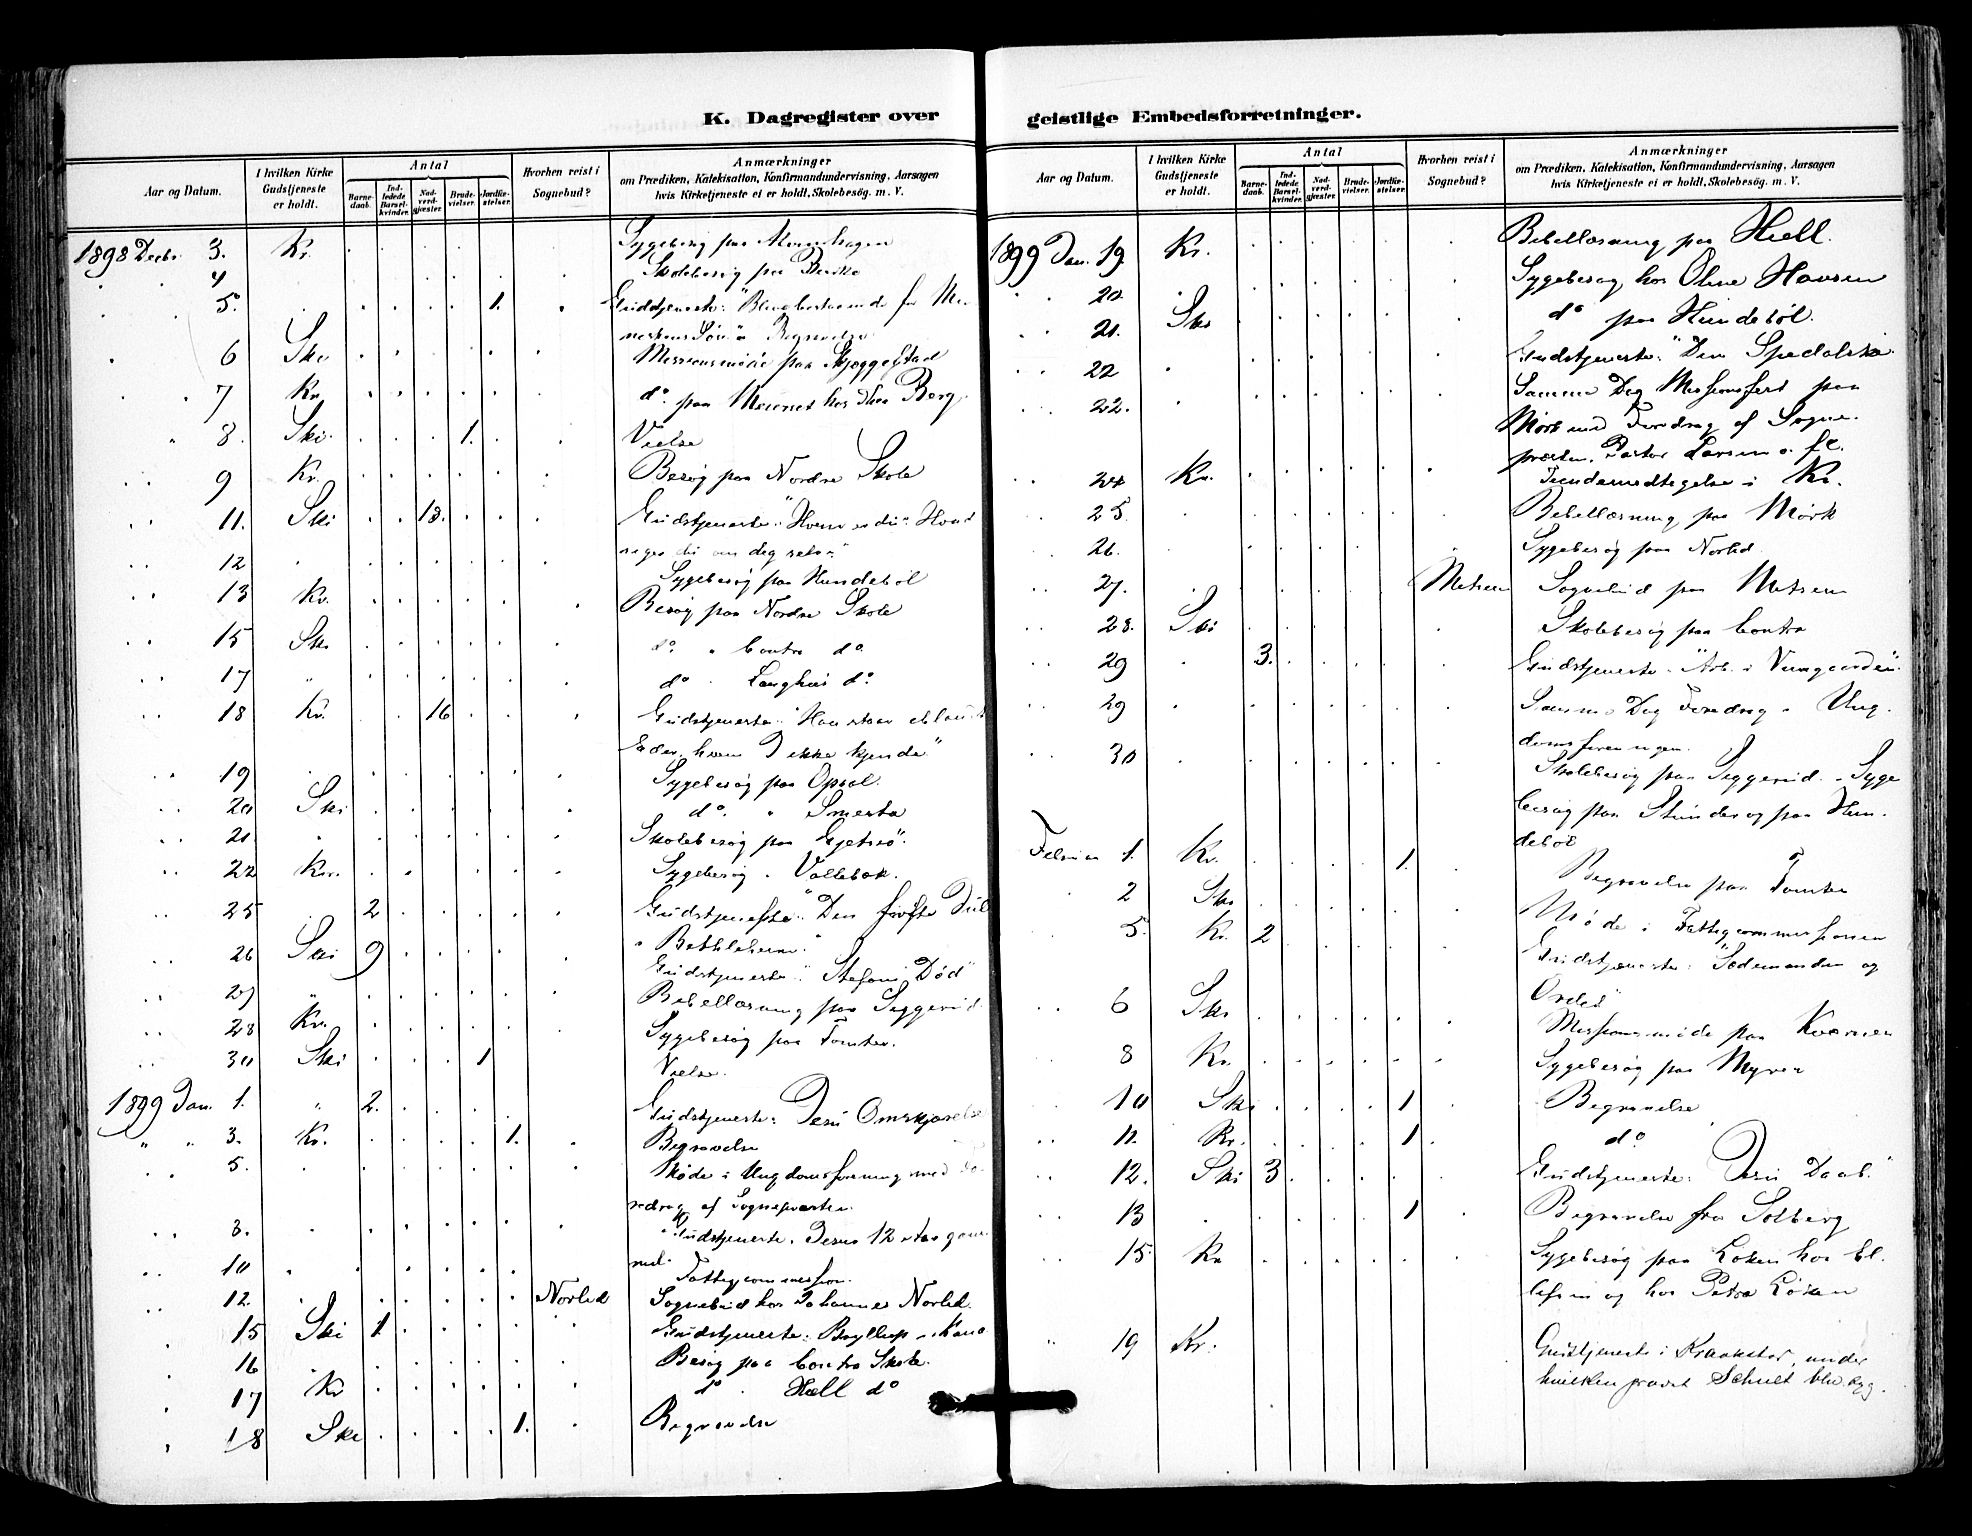 K. Dagregister over
Aar og Datum.
I hvilken Kirke Gudstjeneste er holdt.
Antal
Barnedaab.
Indledede Barselkvinder.
Nadverdgjæster.
Brudevielser.
Jordfæstelser.
Hvorhen reist i Sognebud?
Anmærkninger
om Prædiken, Katekisation, Konfirmandundervisning, Aarsagen
hvis Kirketjeneste ei er holdt, Skolebesög. m. V.
1898 Decbr. 3. Kr. Sygebesøg paa
4 Skolebesøg paa
5. 1. Gudstjeneste: "
Begravelse
6 Ski Missionsmøde paa Skjeggestad
7 Kr. do. paa hos Berg.
8. Ski. 1. Vielse
9 Kr. Besøg paa Nordre Skole
11. Ski 18. Gudstjeneste: "Hvem er du? Hvad
siger du om dig selv?"
12 Sygebesøg paa Hundebøl
13 Kr. Besøg paa Nordre Skole
15 Ski do. " Contra do.
17 " do Langhus do.
18 Kr. 16 Gudstjeneste: "Han staar iblandt
Eder, hvem I ikke kjende"
19 Sygebesøg paa Opsal.
20 Ski do. " Smerta
21. Skolebesøg paa Gjetsjø.
22 Kr. Sygebesøg
25 2 Gudstjeneste: "Den første Jul
i Bethlehem."
26 Ski 9 Gudstjeneste: "Stefani Død"
27 " Bibellæsning paa Siggerud.
28 Kr. Sygebesøg paa Tomter.
30 Ski 1 Vielse.
1899 Jan. 1. " 2. Gudstjeneste: Jesu Omskjærelse
" " 3. Kr. 1. Begravelse
5. Møde i Ungdomsforening med Fo-
redrag af Sognepræsten.
8. Gudstjeneste. Jesus 12 Aar gam-
mel.
10 Fattigcommission.
12 Norlid Sognebud hos Johannes Norlid.
15 Ski 1 Gudstjeneste: Bryllup i Kana
16 Besøg paa Contra Skole.
17 Kr do Hæll do
18 Ski 1. Begravelse
geistlige Embedsforretninger.
Aar og Datum.
I hvilken Kirke Gudstjeneste er holdt.
Antal
Barnedaab.
Indledede Barselkvinder.
Nadverdgjæster.
Brudevielser.
Jordfæstelser.
Hvorhen reist i Sognebud?
Anmærkninger
om Prædiken, Katekisation, Konfirmandundervisning, Aarsagen
hvis Kirketjeneste ei er holdt, Skolebesög. m. V.
1899 Jan. 19. Kr. Bibellæsning paa Hæll.
20. Sygebesøg hos Oline Hansen
21. Ski do paa Hundebøl.
22 Gudstjeneste: "Den Spedalske
22. Samme Dag Missionsfest paa
Mørk med Foredrag af Sogne-
præsten, Pastor Larsen o. fl.
24 Kr. i Kr.
25. Bibellæsning paa Mørk
26. Sygebesøg paa Norlid.
27. Sognebud paa
28. Ski Skolebesøg paa Contra
29 3. Gudstjeneste: "Arb. i Viingaarden".
29 Samme Dag Foredrag i Ung-
domsforeningen.
30 Skolebesøg paa Siggerud. Syge-
besøg paa Stunder og paa Hun-
debøl
Februar 1. Kr. 1. Begravelse paa Tomter
2 Ski Møde i Fattigcommissionen
5. Kr. 2 Gudstjeneste: "Sædemanden og
Ordet"
6 Ski Missionsmøde paa Kværnen
8 Kr. Sygebesøg paa Myren
10 Ski 1 Begravelse
11. Kr. 1 do
12. Ski 3 Gudstjeneste: "Jesu Daab."
13 1 Begravelse fra Solberg
15. Kr Sygebesøg paa Løken hos El-
og hos Petra Løken
19 Kr. Gudstjeneste i Kraakstad, under
hvilken provst Schult blev syg.